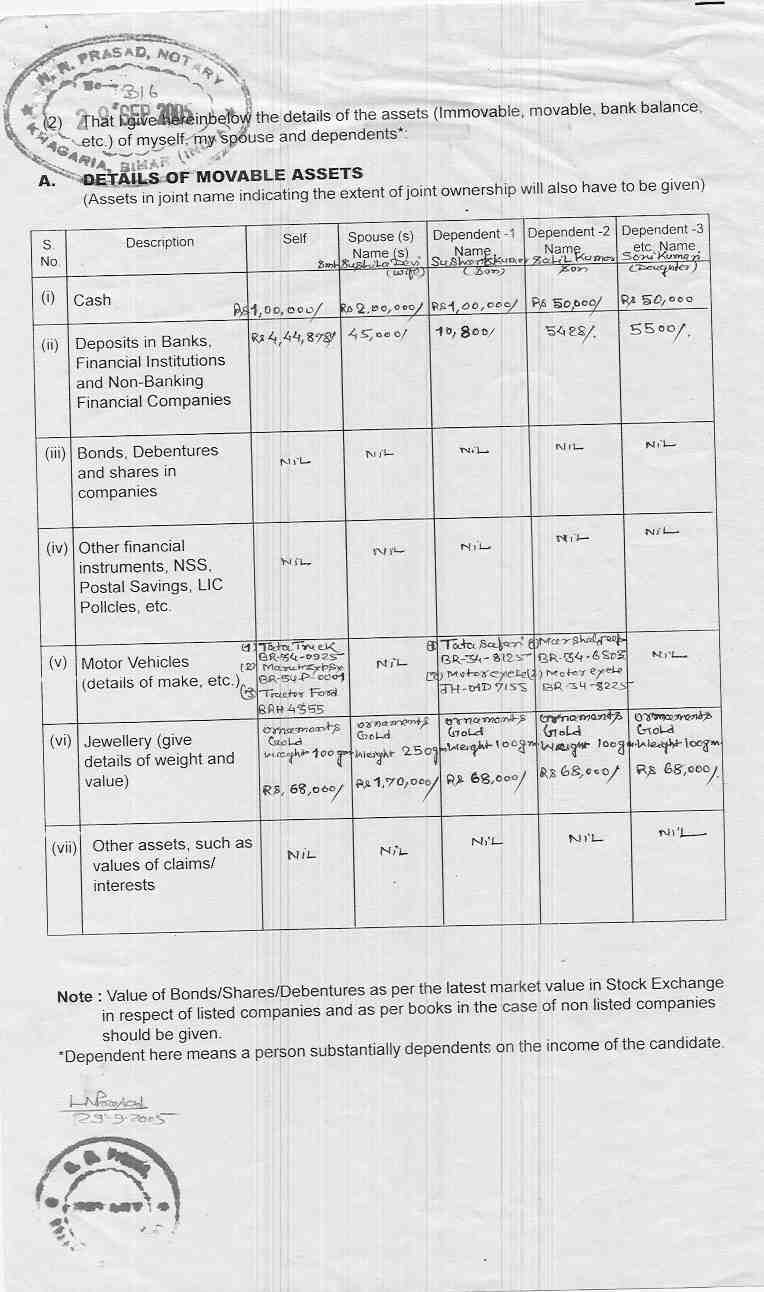 N. N. PRASAD, NOTARY
No 316
29 SEP 2005
KHAGARIA, BIHAR (INDIA)
(2) That I give hereinbelow the details of the assets (Immovable, movable, bank balance,
etc.) of myself, my spouse and dependents*:
A. DETAILS OF MOVABLE ASSETS
(Assets in joint name indicating the extent of joint ownership will also have to be given)
S. No. Description Self Spouse (s) Name (s) Smt Sushila Devi (wife) Dependent -1 Name (Son) Dependent -2 Name Salil Kumar Son Dependent -3 etc. Name Soni Kumari (Daughter)
(i) Cash Rs 1,00,000/ Rs 2,00,000/ Rs 1,00,000/ Rs 50,000/ Rs 50,000
(ii) Deposits in Banks, Rs 4,44,878/ 45,000/ 10,800/ 5428/. 5500/.
Financial Institutions
and Non-Banking
Financial Companies
(iii) Bonds, Debentures NiL NiL NiL NiL NiL
and shares in
companies
(iv) Other financial NiL NiL NiL NiL NiL
instruments, NSS,
Postal Savings, LIC
Policies, etc.
(v) Motor Vehicles (1) Tata Truck NiL (1) Tata Safari (1) Marshal Jeep NiL
(details of make, etc.) BR-34-0925 BR-34-8125 BR-34-6503
(2) (2) Motorcycle (2) Motor cycle
JH-01D 7155 BR-34-8225
(3) Tractor Ford
BRH 4355
(vi) Jewellery (give ornaments ornaments ornaments ornaments ornaments
details of weight and Gold Gold Gold Gold Gold
value) weight 100 gm weight 250 gm weight 100 gm weight 100 gm weight 100 gm
Rs, 68,000/ Rs 1,70,000/ Rs 68,000/ Rs 68,000/ Rs 68,000/.
(vii) Other assets, such as NiL NiL NiL NiL NiL
values of claims/
interests
Note : Value of Bonds/Shares/Debentures as per the latest market value in Stock Exchange
in respect of listed companies and as per books in the case of non listed companies
should be given.
*Dependent here means a person substantially dependents on the income of the candidate.
29-9-2005